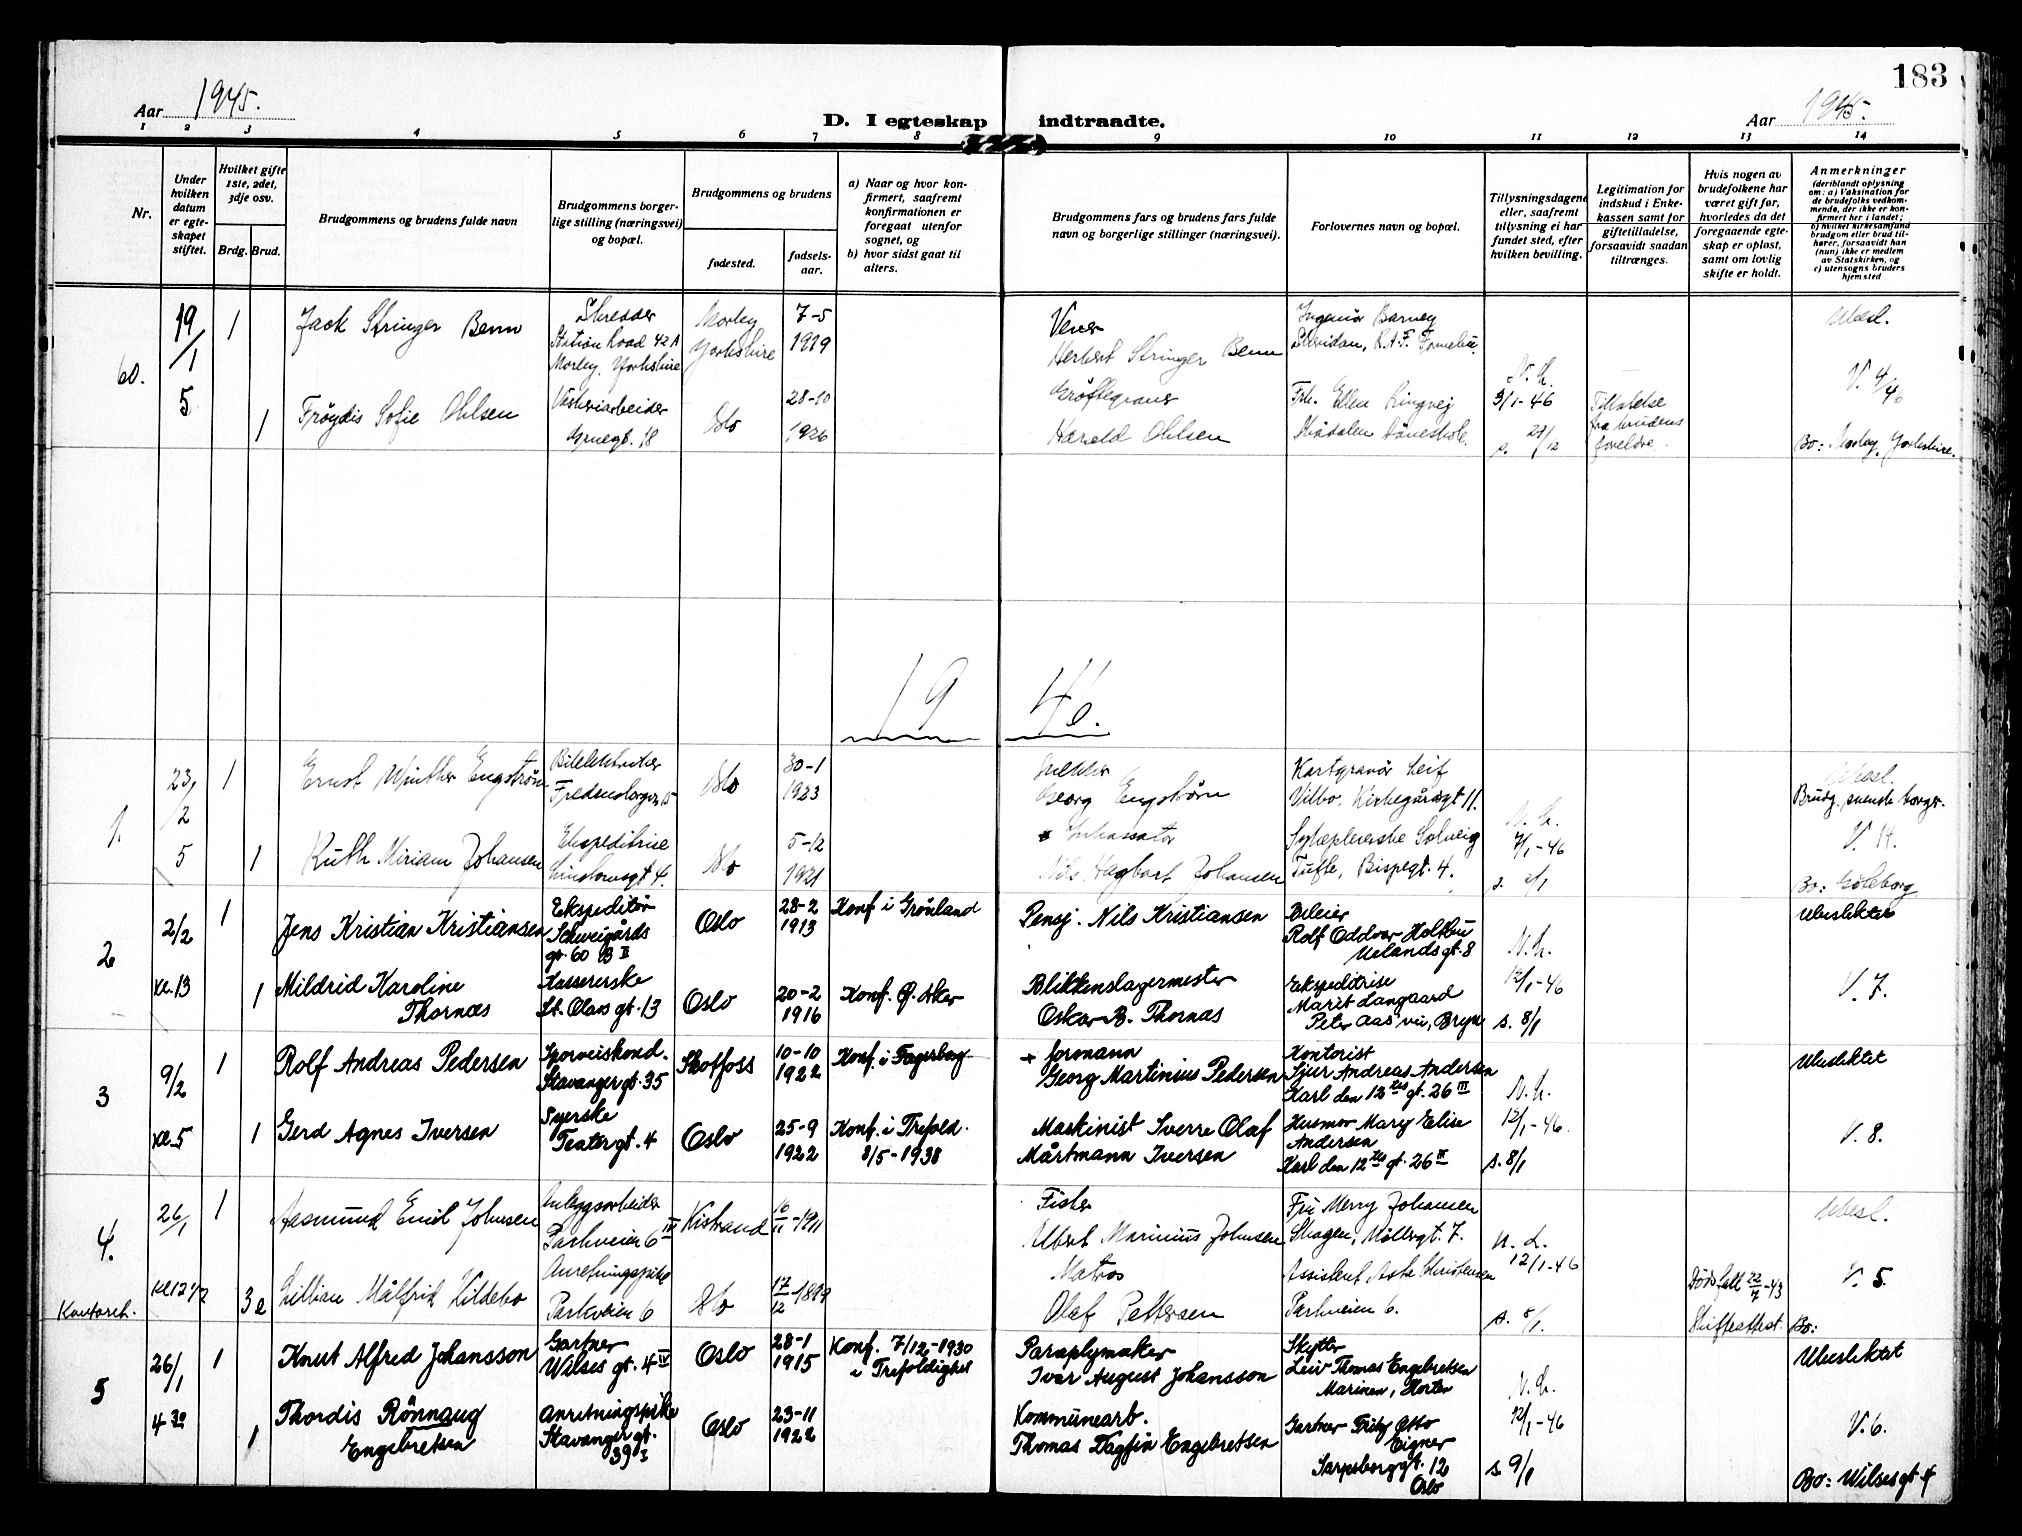 183
Aar 1945.
D. I egteskap indtraadte.
Aar 1945.
1 2 3 4 5 6 7 8 9 10 11 12 13 14
Nr.
Under hvilken datum er egte-skapet stiftet.
Hvilket gifte 1ste, 2det, 3dje osv.
Brdg. Brud.
Brudgommens og brudens fulde navn
Brudgommens borger-lige stilling (næringsvei) og bopæl.
Brudgommens og brudens
fødested.
fødsels-aar.
a) Naar og hvor kon-firmert, saafremt konfirmationen er foregaat utenfor sognet, og
b) hvor sidst gaat til alters.
Brudgommens fars og brudens fars fulde navn og borgerlige stillinger (næringsvei).
Forlovernes navn og bopæl.
Tillysningsdagene eller, saafremt tillysning ei har fundet sted, efter hvilken bevilling.
Legitimation for indskud i Enke-kassen samt for giftetilladelse, forsaavidt saadan tiltrænges.
Hvis nogen av brudefolkene har været gift før, hvorledes da det foregaaende egte-skap er opløst, samt om lovlig skifte er holdt.
Anmerkninger
(deriblandt oplysning om: a) Vaksination for de brudefolks vedkom-mende, der ikke er kon-firmert her i landet; b) hvilket kirkesamfund brudgom eller brud til-hører, forsaavidt han (hun) ikke er medlem av Statskirken, og c) utensogns bruders hjemsted
60.
19/1
5
1
Jack Stringer Benn
Station Road 42A
Morley, Yorkshire
Morley
Yorkshire
7-5
1919
Herbert Stringer Benn
Ingeniør Barney
Sheridan, R.A.F. Fornebu.
Ubesl.
1
Frøydis Sofie Ohlsen
Væskeriarbeider
Gruegt. 18
Oslo
28-10
1926
Grøftegraver
Harald Ohlsen
Frk. Ellen Ringvej
N. L.
3/1-46
s. 27/12
Tillatelse
fra brudens
foreldre.
V. 4/46
Bo: Morley, Yorkshire.
1946.
1.
23/2
5
1
Ernst Winther Engstrøm
Bilelektriker
Fredensborgvn. 15
Oslo
30-1
1923
Georg Engstrøm
Kartgravør Leif
Vilbo, Kirkegårdsgt 11.
Ubesl.
Brudg. svensk borger.
1
Ruth Miriam Johansen
Ekspeditrise
Oslo
5-12
1921
Inkassator
Nils Hagbart Johansen
Sykepleierske Solveig
Tufte, Bispegt. 4.
N. L.
7/1-46
V. 14.
Bo: Gøteborg
2
2/2
kl. 13
1
Jens Kristian Kristiansen
Ekspeditør
Schweigårds
gt. 60 B II
Oslo
28-2
1913
Konf. i Grønland
Pensj. Nils Kristiansen
Rolf Oddvar Holten
Uelandsgt. 8
Ubeslektet
1
Mildrid Karoline
Thornæs
Kassererske
St. Olavs gt. 13
Oslo
20-2
1916
Konf. Ø. Aker
Blikkenslagermester
Oskar B. Thornæs
Ekspeditrise
Marit Langaard
Peter Aas' vei, Bryn
N. L.
12/1-46
s. 8/1
V. 7.
3
9/2
kl. 5
1
Rolf Andreas Pedersen
Sporveiskond.
Stavangergt. 35
Skotfoss
10-10
1922
Konf. i Fagerborg
+ Formann
Georg Martinius Pedersen
Kontorist
Sjur Andreas Andersen
Karl den 12tes gt. 26 III
Ubeslektet
1
Gerd Agnes Iversen
Syerske
Teatergt. 4
Oslo
25-9
1922
Konf. i Trefold.
8/5-1938
Maskinist Sverre Olaf
Mårtmann Iversen
Husmor Mary Elise
Andersen
Karl den 12tes gt. 26 III
N. L.
12/1-46.
s. 8/1
V. 8.
4.
26/1
kl 12 1/2
Kontorch.
1
Aasmund Emil Johnsen
Anleggsarbeider
Parkveien 6 IV
Kistrand
16/11-1911
Fisker
Albert Marinius Johnsen
Fru Merry Johansen
Skagen, Møllergt. 7.
Ubesl.
3 e
Lillian Målfrid Kildebo
Anretningspike
Parkveien 6
Oslo
17/12-1899
Matros
Olaf Pettersen
Assistent Asta Christensen
Parkveien 6.
N. L.
12/1-46
s. 8/1.
Dødsfall 22/7-43
Skifteattest.
V. 5.
Bo:
5
26/1
4 30
1
Knut Alfred Johansson
Gartner
Wilses gt. 4 IV
Oslo
28-1
1915
Konf. 7/12-1930
i Trefoldighet
Paraplymaker
Ivar August Johansson
Skytter
Leiv Thomas Engebretsen
Marinen, Horten
Ubeslektet
1
Thordis Rønnaug
Engebretsen
Anretningspike
Stavanger gt.
39 I
Oslo
23-11
1922
Kommunearb.
Thomas Dagfin Engebretsen
Gartner Fritz Otto
Eigner
Sarpsborggt. 12
Oslo
N. L.
12/1-46
s. 9/1
V. 6.
Bo: Wilses gt. 4